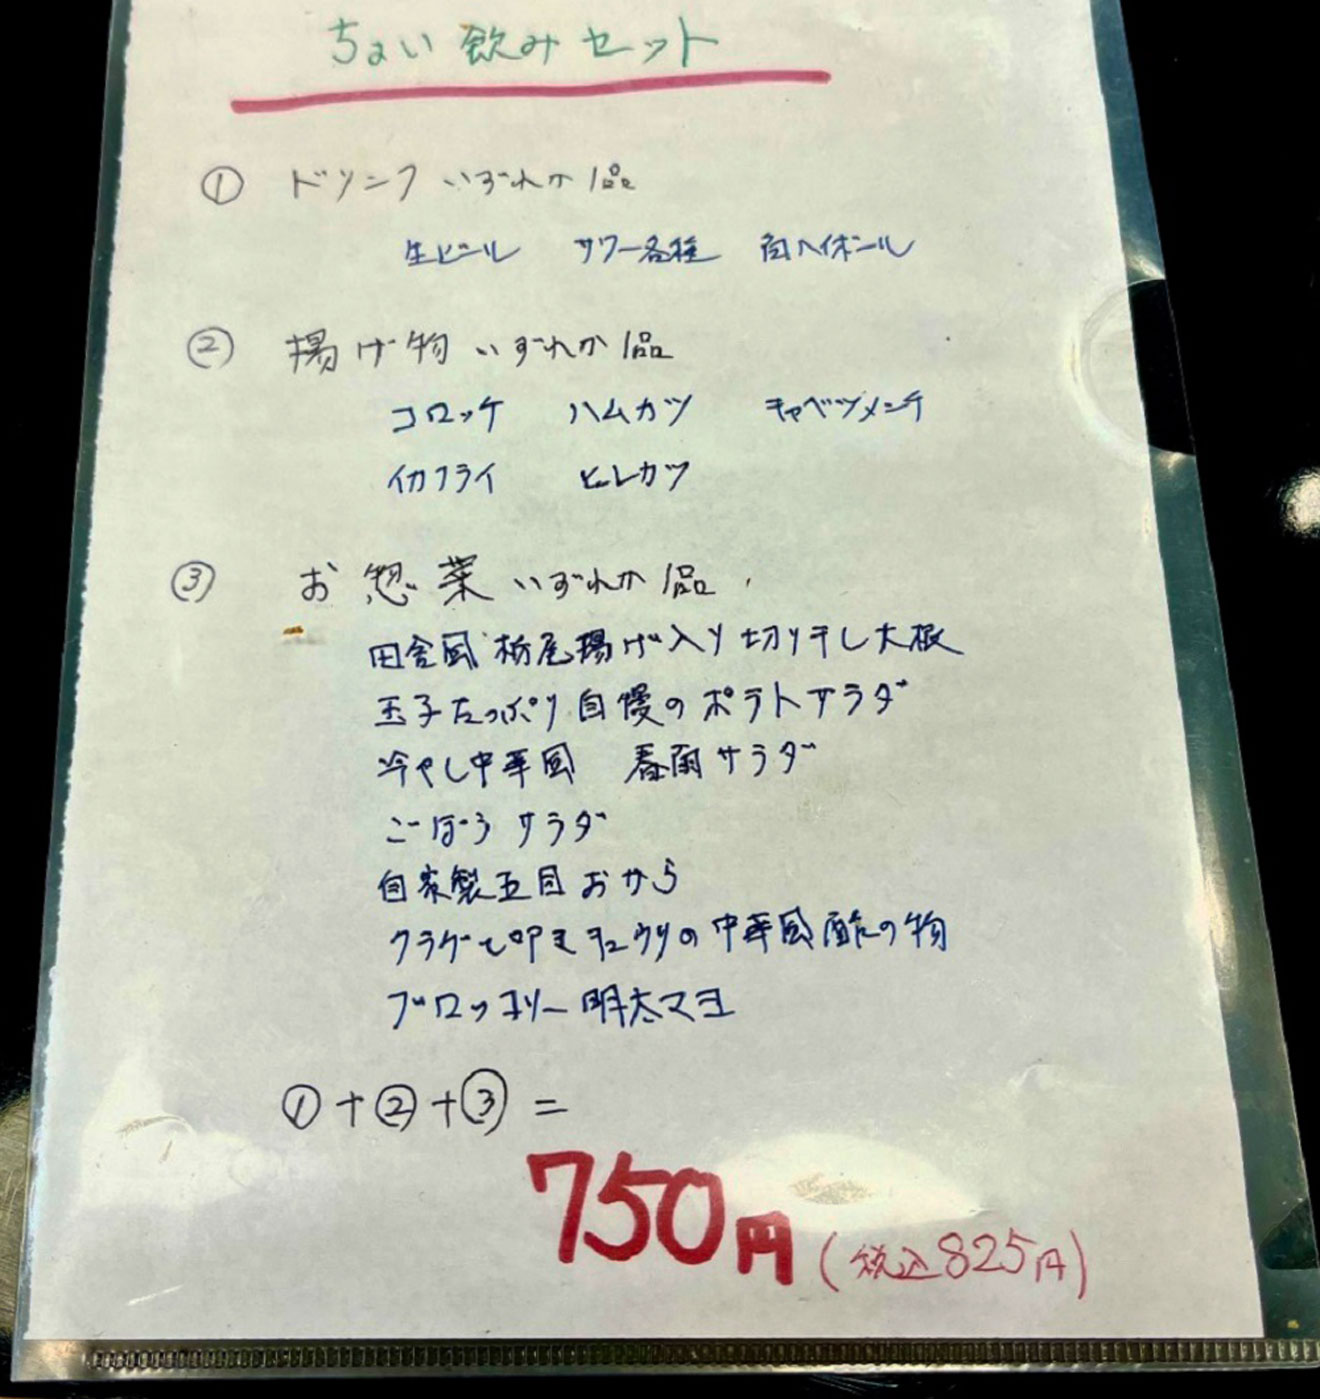 ちょい飲みセット
① ドリンク いずれか1品
生ビール サワー各種 角ハイボール
② 揚げ物 いずれか1品
コロッケ ハムカツ キャベツメンチ
イカフライ ヒレカツ
③ お惣菜 いずれか1品
田舎風 栃尾揚げ入り切り干し大根
玉子たっぷり自慢のポテトサラダ
冷やし中華風 春雨サラダ
ごぼうサラダ
自家製五目おから
クラゲと叩きキュウリの中華風酢の物
ブロッコリー明太マヨ
①+②+③=
750円(税込825円)